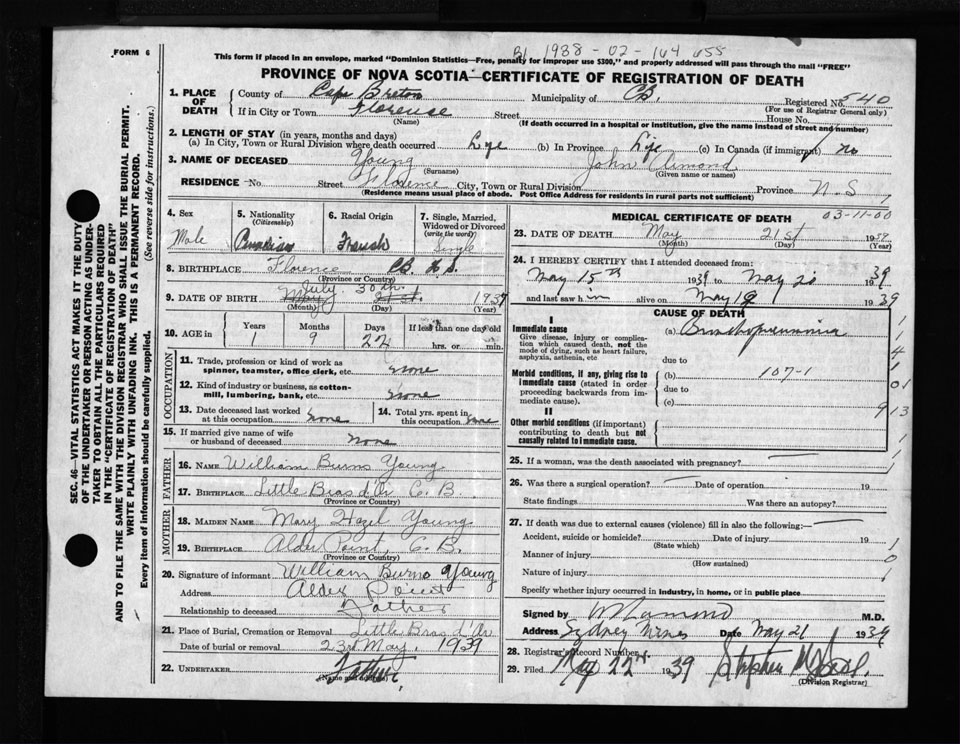 FORM 6
B1 1938-02-164 655
This form if placed in an envelope, marked "Dominion Statistics—Free, penalty for improper use $300," and properly addressed will pass through the mail "FREE"
PROVINCE OF NOVA SCOTIA—CERTIFICATE OF REGISTRATION OF DEATH
1. PLACE OF DEATH County of Cape Breton Municipality of CB. Registered No. 540
(For use of Registrar General only)
If in City or Town Florence Street House No.
(Name) (If death occurred in a hospital or institution, give the name instead of street and number)
2. LENGTH OF STAY (in years, months and days)
(a) In City, Town or Rural Division where death occurred Life (b) In Province Life (c) In Canada (if immigrant) no
3. NAME OF DECEASED Young John Armond
(Surname) (Given name or names)
RESIDENCE No. Street Florence City, Town or Rural Division Province N.S
(Residence means usual place of abode. Post Office Address for residents in rural parts not sufficient)
4. Sex 5. Nationality 6. Racial Origin 7. Single, Married,
(Citizenship) Widowed or Divorced
(write the word)
Male Canadian French Single
8. BIRTHPLACE Florence CB. N.S.
(Province or Country)
July 30th
9. DATE OF BIRTH May 21st. 1937
(Month) (Day) (Year)
10. AGE in Years Months Days If less than one day old
1 9 22 hrs. or min.
OCCUPATION
11. Trade, profession or kind of work as
spinner, teamster, office clerk, etc. none
12. Kind of industry or business, as cotton-
mill, lumbering, bank, etc. none
13. Date deceased last worked at this occupation none 14. Total yrs. spent in this occupation none
15. If married give name of wife
or husband of deceased none
FATHER
16. NAME William Burns Young
17. BIRTHPLACE Little Bras d'Or C.B.
(Province or Country)
MOTHER
18. MAIDEN NAME Mary Hazel Young
19. BIRTHPLACE Alder Point, C.B.
(Province or Country)
20. Signature of informant William Burns Young
Address Alder Point
Relationship to deceased Father
21. Place of Burial, Cremation or Removal Little Bras d'Or
Date of burial or removal 23rd May, 1939
22. UNDERTAKER Father
(Name and address)
MEDICAL CERTIFICATE OF DEATH
03-11-00
23. DATE OF DEATH May 21st 1939
(Month) (Day) (Year)
24. I HEREBY CERTIFY that I attended deceased from:
May 15th 1939 to May 20 1939
and last saw him alive on May 19 1939
CAUSE OF DEATH
I
Immediate cause (a) Bronchopneumonia
Give disease, injury or complication which caused death, not the mode of dying, such as heart failure, asphyxia, asthenia, etc
due to
Morbid conditions, if any, giving rise to immediate cause (stated in order proceeding backwards from immediate cause).
(b) 107-1
due to
(c)
II
Other morbid conditions (if important) contributing to death but not causally related to immediate cause.
1
1
4
1
01
9 13
1
1
25. If a woman, was the death associated with pregnancy?
26. Was there a surgical operation? Date of operation 19
State findings Was there an autopsy?
27. If death was due to external causes (violence) fill in also the following:—
Accident, suicide or homicide? Date of injury 19
(State which)
Manner of injury
(How sustained)
Nature of injury
1
0
1
Specify whether injury occurred in industry, in home, or in public place
Signed by M.D.
Address Sydney Mines Date May 21 1939
28. Registrar's Record Number
29. Filed May 22nd 1939 Stephen
(Division Registrar)
SEC. 46—VITAL STATISTICS ACT MAKES IT THE DUTY
OF THE UNDERTAKER OR PERSON ACTING AS UNDER-
TAKER TO OBTAIN ALL THE PARTICULARS REQUIRED
IN THE "CERTIFICATE OF REGISTRATION OF DEATH"
AND TO FILE THE SAME WITH THE DIVISION REGISTRAR WHO SHALL ISSUE THE BURIAL PERMIT.
WRITE PLAINLY WITH UNFADING INK. THIS IS A PERMANENT RECORD.
Every item of information should be carefully supplied. (See reverse side for instructions.)